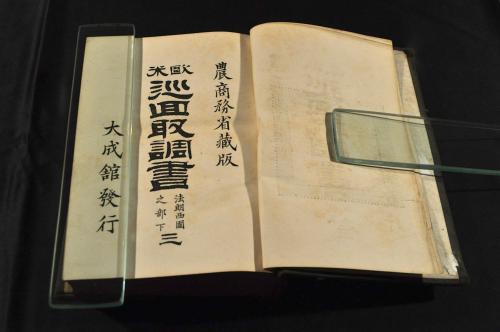 農商務省藏版
歐米
巡回取調書
法朗西國
之部下
三
大成舘發行